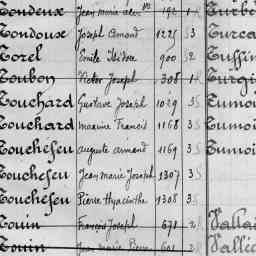 Tondeux Jean marie alex 192 1 Turbo
Tondoux Joseph Amand 1225 S3 Turca
Torel Emile Isidore 900 S2 Tuffin
Toubon Victor Joseph 308 1 Turgi
Touchard Gustave Joseph 1029 3S Tumoi
Touchard maxime Francis 1168 3S Tumoi
Touchefeu auguste armand 1169 3S Tumoi
Touchefeu Jean Marie Joseph 1307 3S
Touchefeu Pierre Hyacinthe 1308 3S
Touin François Joseph 678 2 Vallai
Touin Jean Marie Pierre 601 2 Vallée